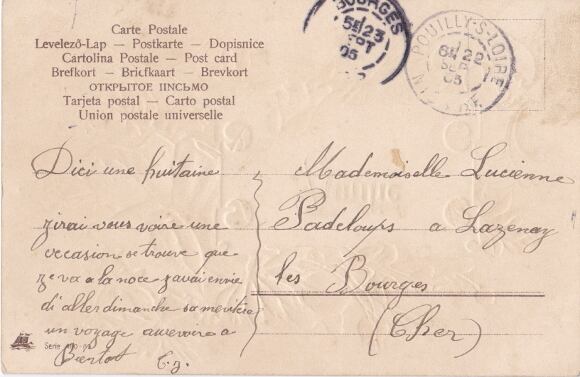 Carte Postale
Levelező-Lap — Postkarte — Dopisnice
Cartolina Postale — Post card
Brefkort — Briefkaart — Brevkort
ОТКРЫТОЕ ПИСЬМО
Tarjeta postal — Carto postal
Union postale universelle
BOURGES
23
SEPT
05
POUILLY-S-LOIRE
22
SEP
05
NIEVRE
Dici une huitaine
jirai vous voire une
occasion se trouve que
je va a la noce javai envie
di aller dimanche sa meritera
un voyage aurevoire a
Bientot
Mademoiselle Lucienne
Padeloups a Lazenay
les Bourges
(Cher)
Serie